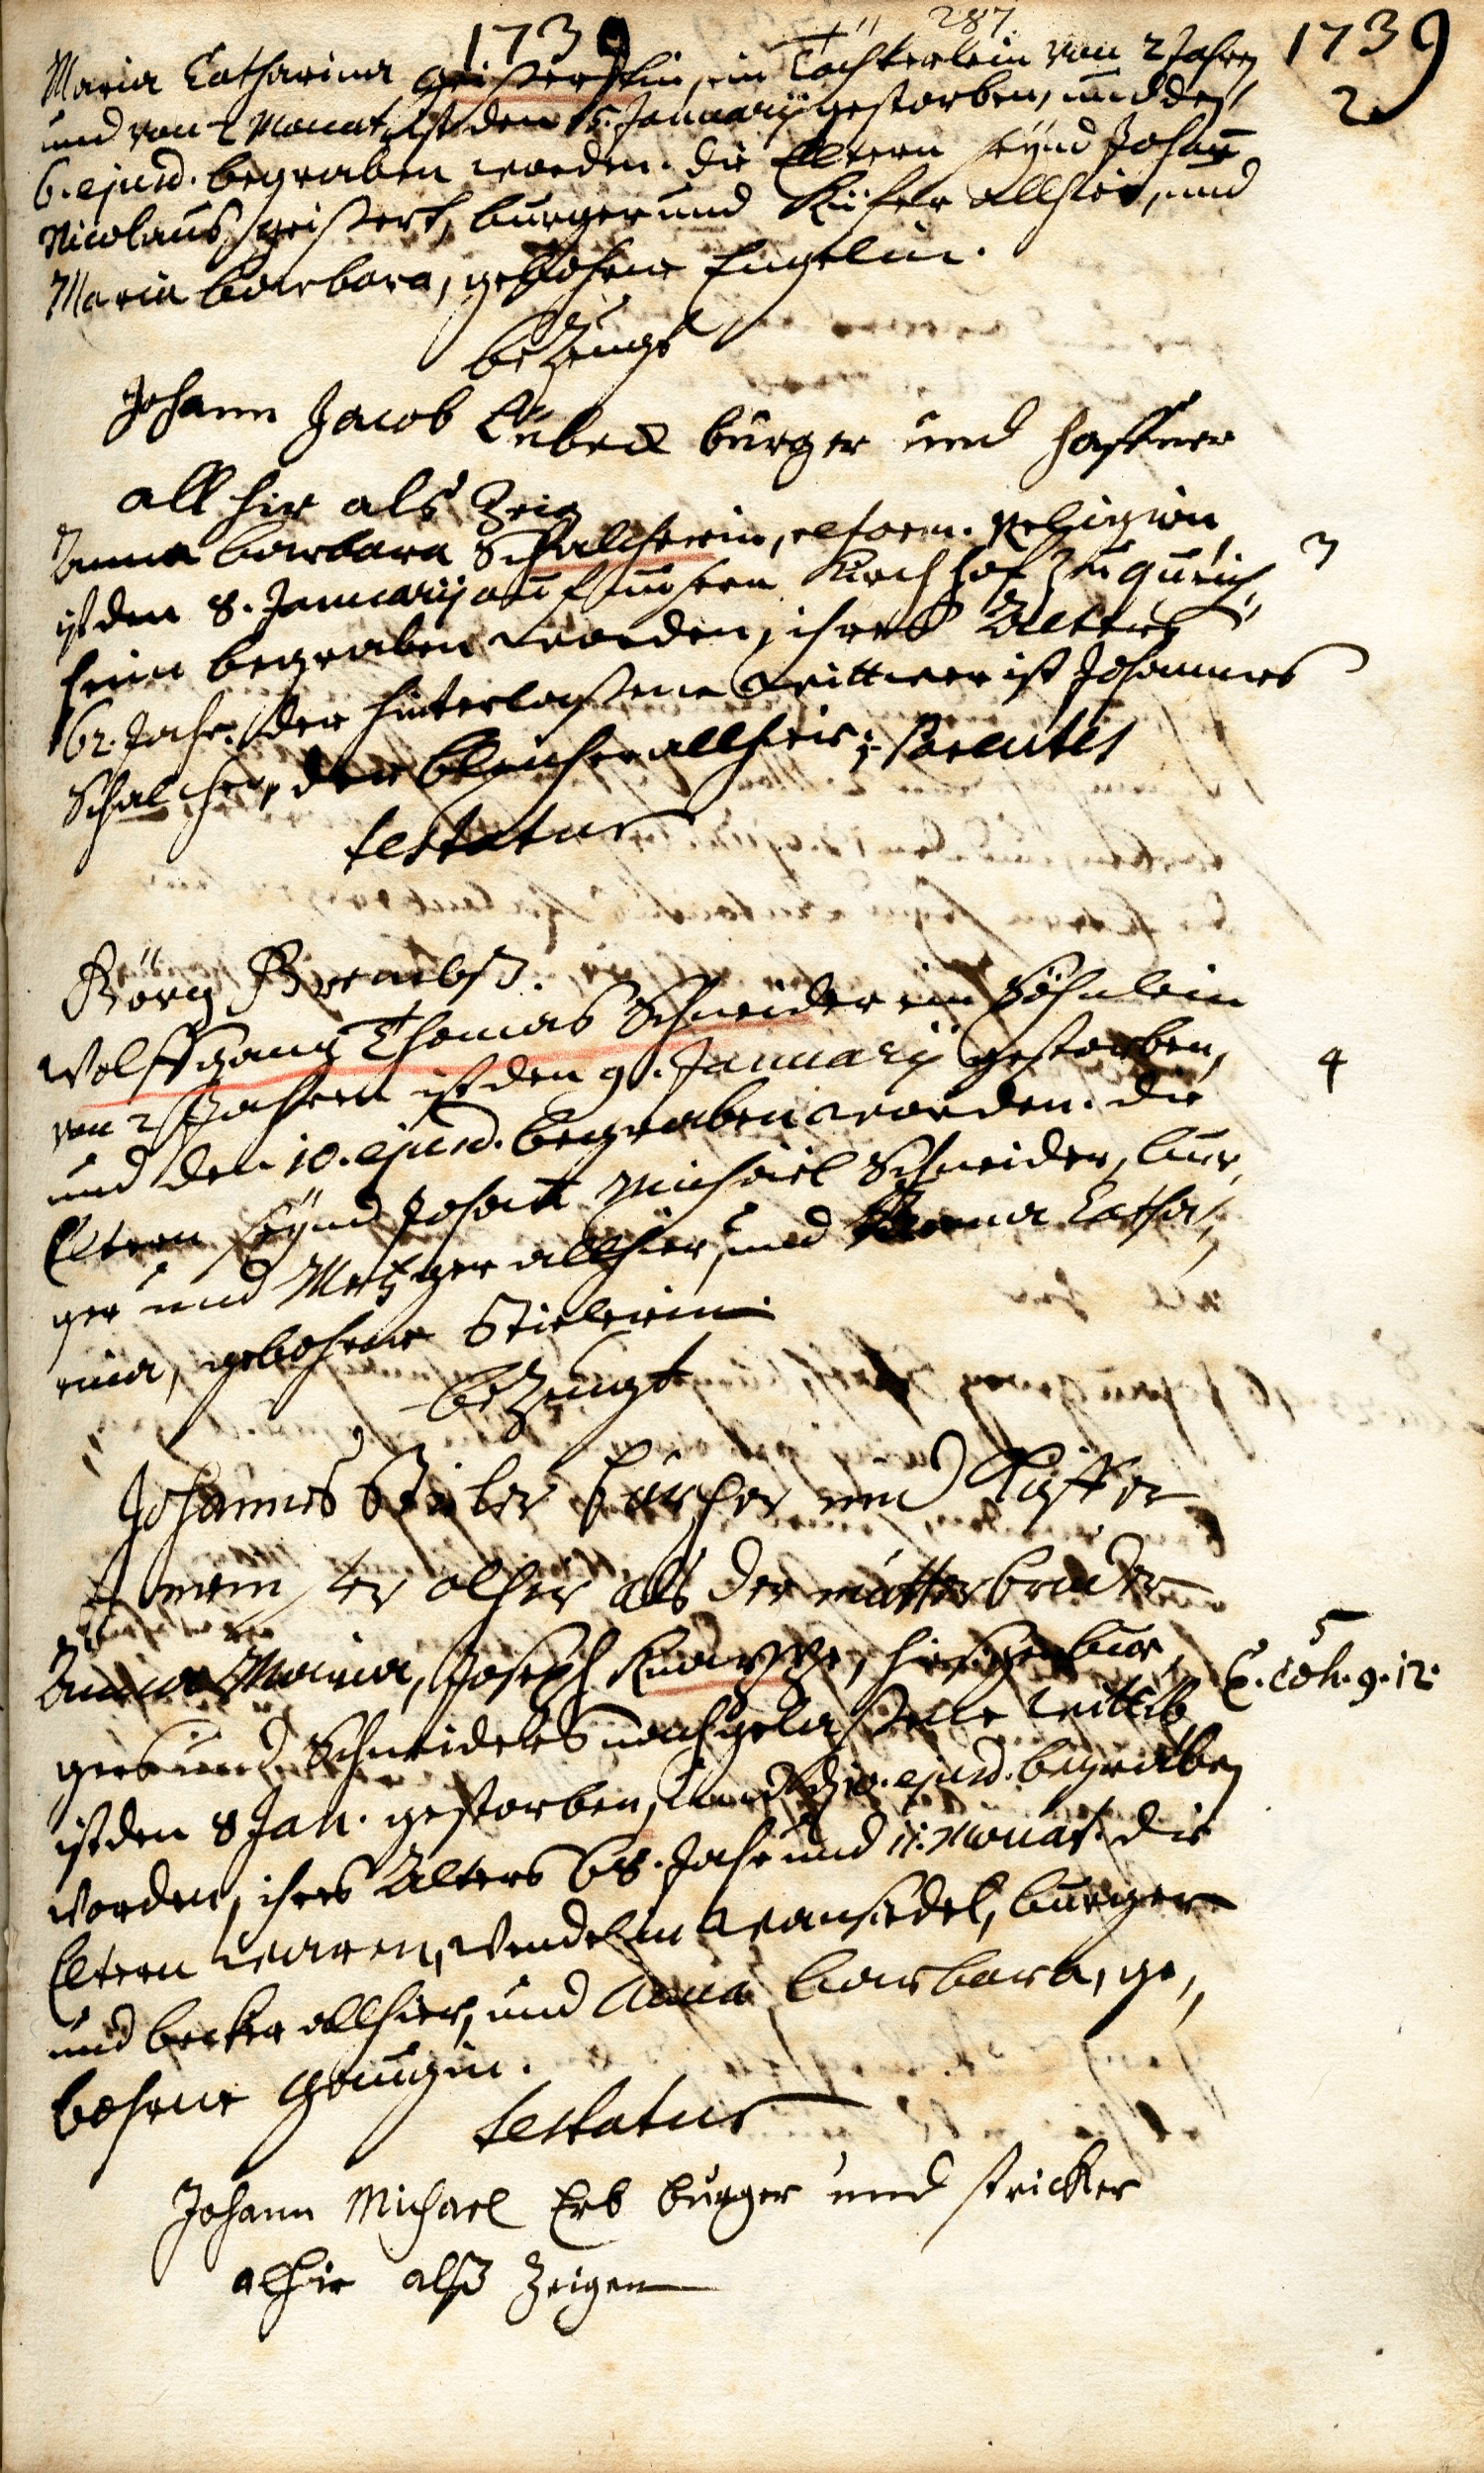 1739 287 1739
Maria Catharina Geißertin, ein Töchterlein von 2 Jahren 2
und von 2 Monat, ist den 5. Januarij gestorben, und den
6. ejusd. begraben worden. die Eltern seÿnd Johañ
Nicolaus Geißert, burger und Küfer allhier, und
Maria barbara, gebohrne Engelin.
bezeugt
Johann Jacob Lübeck bürger und haffner
allhir als Zeig
Anna barbara Schalcherin, reform. Religion, 3
ist den 8. Januarij auf unsern Kirchhof zu Queich,,
heim begraben worden, ihres Alters
62. Jahr. der hinterlaßene Wittwer ist Johannes
Schalcher, der bleicher allhier;
testatur
Görg
Wolffgang Thomas Schneider ein Söhnlein
von 2 Jahren ist den 9. Januarij gestorben, 4
und den 10. ejusd. begraben worden. die
Eltern seÿnd Johañ Michäel Schneider, bur,,
ger und Metzger allhier, und Anna Catha,,
rina, gebohrne Stielerin.
bezeugt
Johannes Stieler und Küffer
allhier als der mutter bruder
Anna Maria, Joseph hießigen bur,, 5
gers und Schneiders nachgelaßene Wittib
ist den 8 Jan. gestorben, und d. 10. ejusd. begraben
worden, ihres Alters 68. Jahr und 11. Monat. die
Eltern waren, Wendelin Wansidel, burger
und becker allhier, und Anna barbara, ge,,
bohrne
testatur
Johann Michael Erb burger und stricker
alhir alß Zeigen